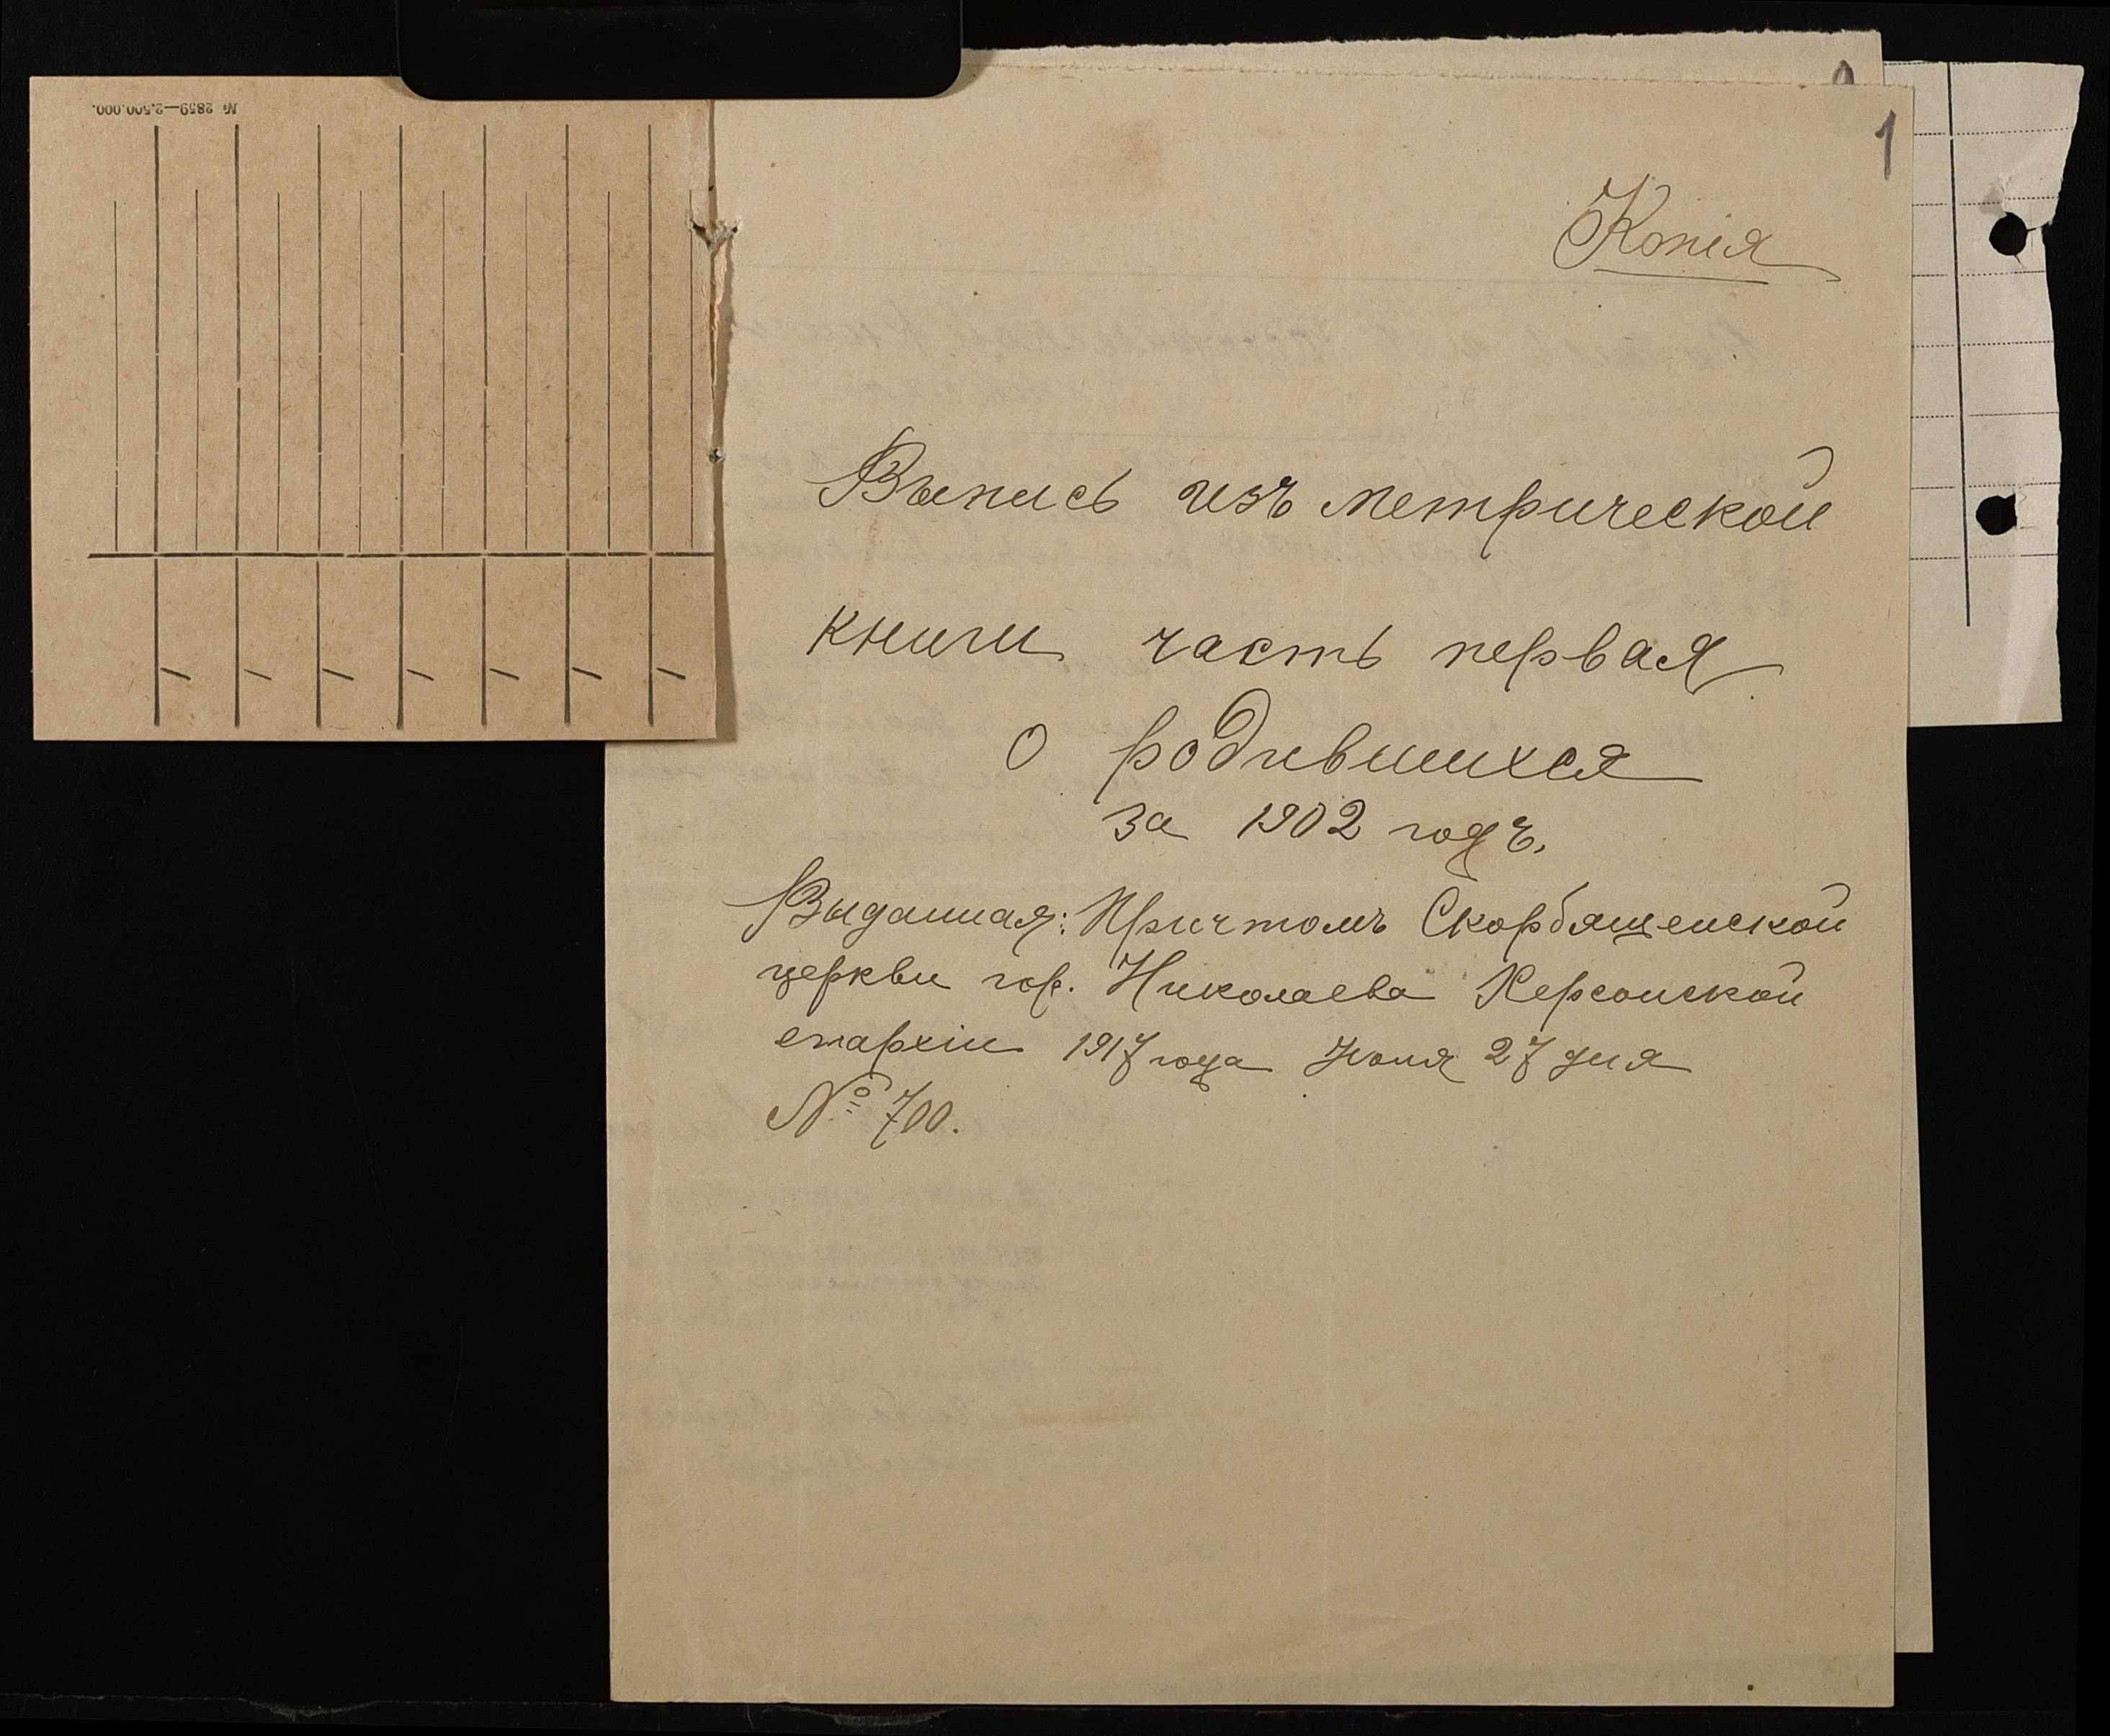 № 2859—2.500.000.
1
Копія
Выпись изъ метрической
книги часть первая
о родившихся
за 1902 годъ.
Выданная: Причтомъ Скорбященской
церкви гор. Николаева Херсонской
епархіи 1917 года Іюня 27 дня
№ 700.